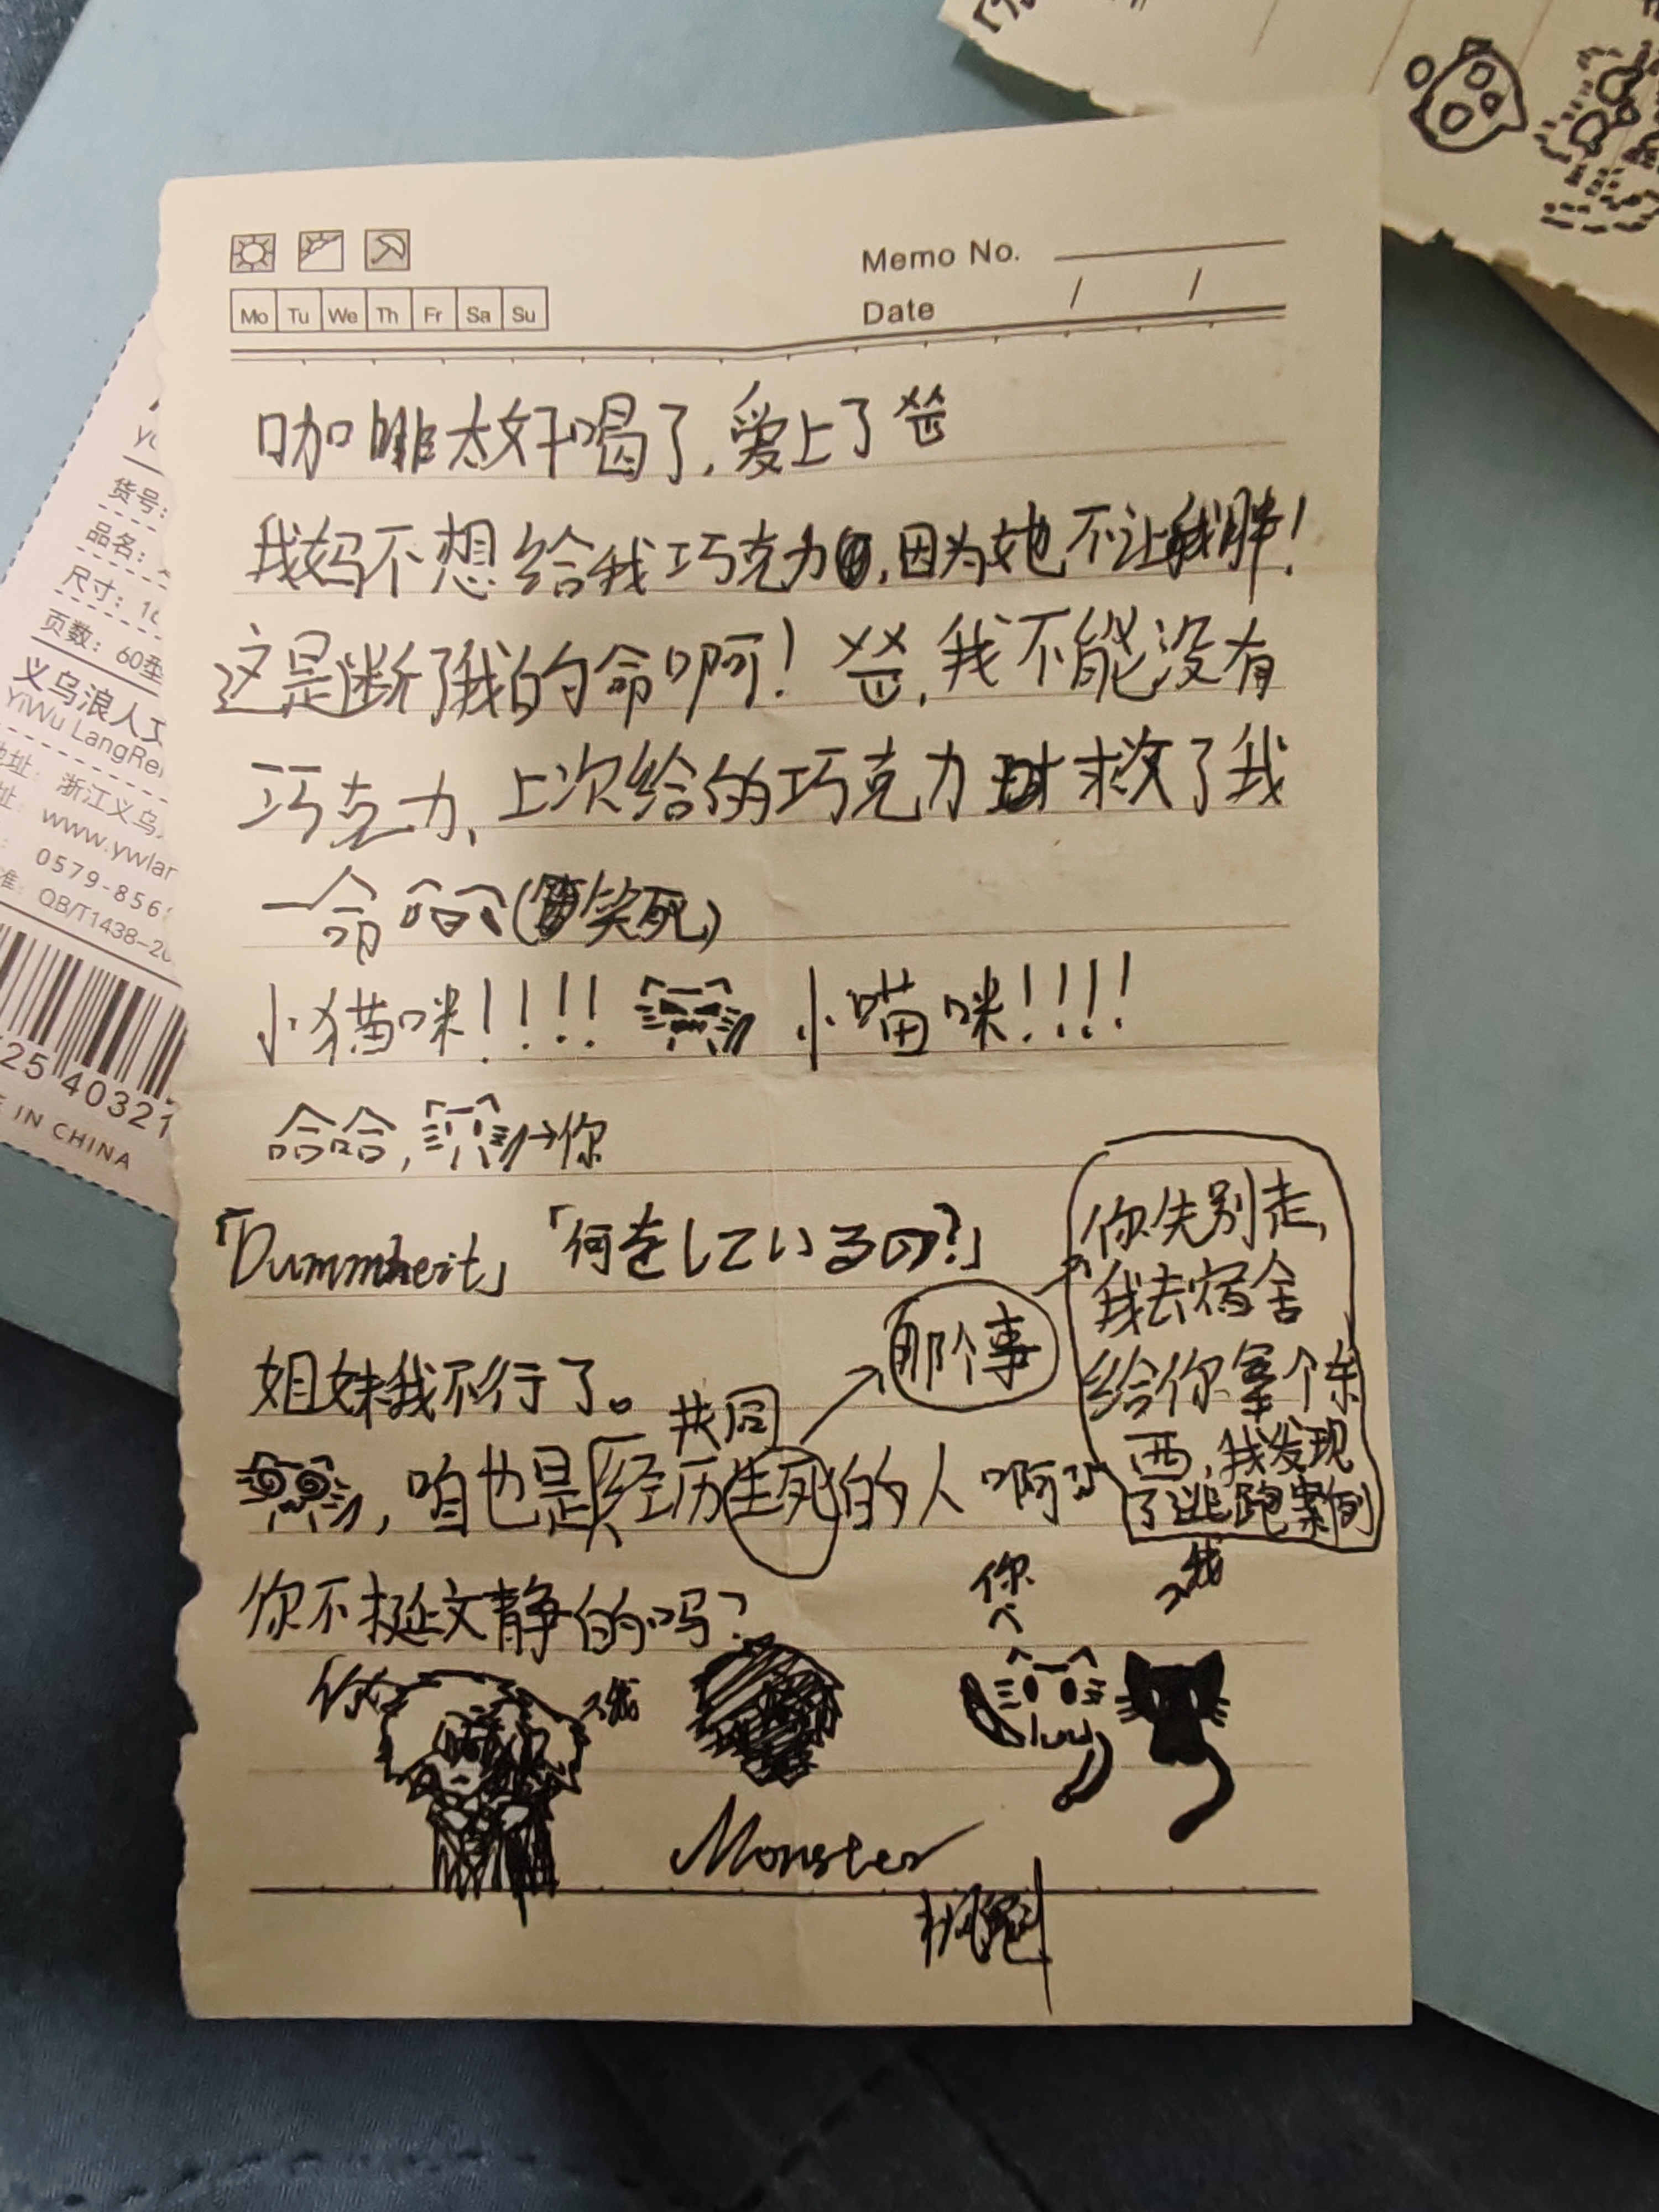 Memo No.
Mo Tu We Th Fr Sa Su
Date / /
咖啡太好喝了,爱上了
我妈不想给我巧克力,因为她不让我胖!
这是断了我的命啊! 我不能没有
巧克力、上次给的巧克力 救了我
一命 哈哈(笑死)
小猫咪!!!! 小喵咪!!!!
哈哈, →你
「Dummheit」「何をしているの?」
姐妹我不行了。
那个事
你先别走,
我去宿舍
给你拿个东
西,我发现
了逃跑案例
共同
,咱也是经历生死的人啊
你不挺文静的吗?
你
我
你
我
Monster
货号:
品名:
尺寸: 16
页数: 60
义乌浪人
YiWu LangRe
址: 浙江义乌
www.ywlan
0579-856
QB/T1438-20
25 40321
IN CHINA